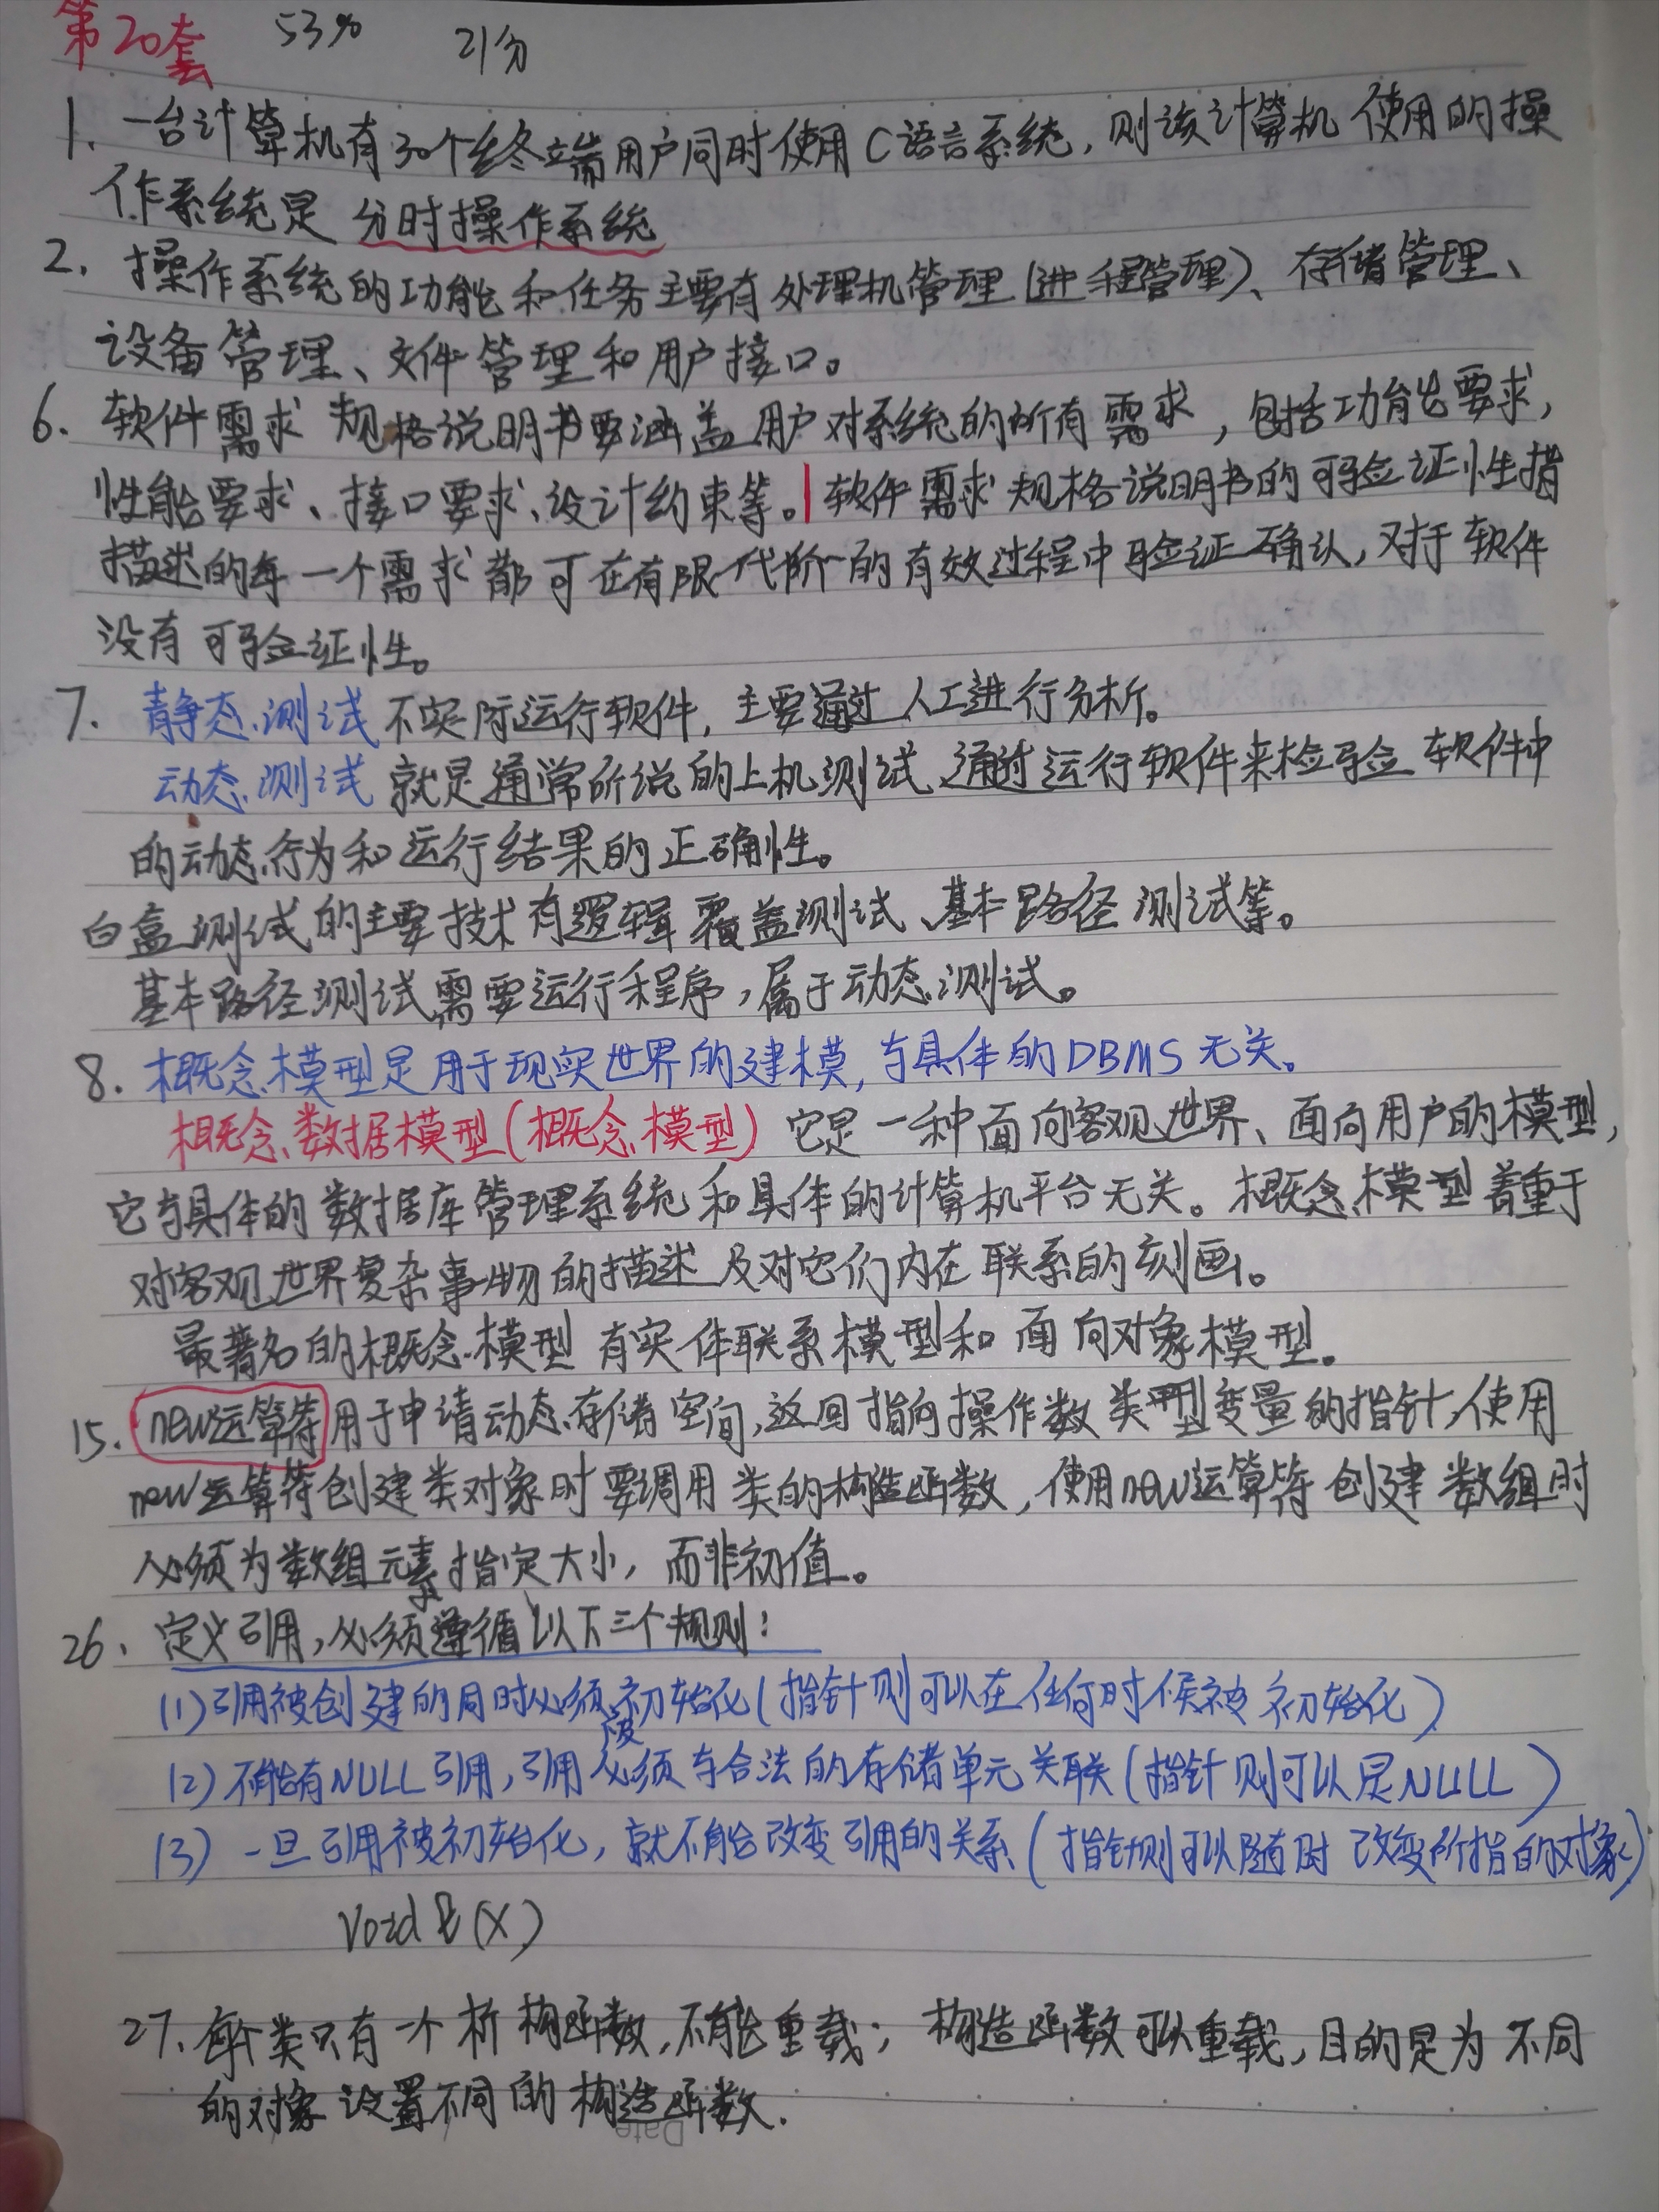 第20套 53% 21分
1. 一台计算机有30个终端用户同时使用C语言系统,则该计算机使用的操
作系统是 分时操作系统
2. 操作系统的功能和任务主要有处理机管理(进程管理)、存储管理、
设备管理、文件管理和用户接口。
6. 软件需求规格说明书要涵盖用户对系统的所有需求,包括功能要求,
性能要求、接口要求、设计约束等。|软件需求规格说明书的可验证性指
描述的每一个需求都可在有限代价的有效过程中验证确认,对于软件
没有可验证性。
7. 静态测试不实际运行软件,主要通过人工进行分析。
动态测试就是通常所说的上机测试、通过运行软件来检验软件中
的动态行为和运行结果的正确性。
白盒测试的主要技术有逻辑覆盖测试、基本路径测试等。
基本路径测试需要运行程序,属于动态测试。
8. 概念模型是用于现实世界的建模,与具体的DBMS无关。
概念数据模型(概念模型) 它是一种面向客观世界、面向用户的模型,
它与具体的数据库管理系统和具体的计算机平台无关。概念模型着重于
对客观世界复杂事物的描述及对它们内在联系的刻画。
最著名的概念模型有实体联系模型和面向对象模型。
15. new运算符用于申请动态存储空间,返回指向操作数类型变量的指针,使用
new运算符创建类对象时要调用类的构造函数,使用new运算符创建数组时
必须为数组元素指定大小,而非初值。
26. 定义引用,必须遵循以下三个规则:
(1)引用被创建的同时必须被初始化(指针则可以在任何时候被初始化)
(2)不能有NULL引用,引用必须与合法的存储单元关联(指针则可以是NULL)
(3)一旦引用被初始化,就不能改变引用的关系(指针则可以随时改变所指的对象)
void &(X)
27. 每个类只有一个析构函数,不能重载;构造函数可以重载,目的是为不同
的对象设置不同的构造函数.
Date